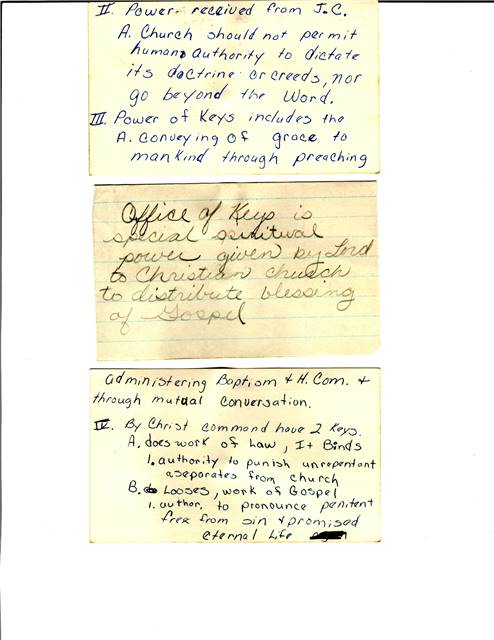 II. Power received from J.C.
A. Church should not permit
human authority to dictate
its doctrine or creeds, nor
go beyond the Word.
III. Power of Keys includes the
A. conveying of grace to
mankind through preaching
Office of Keys is
special spiritual
power given by Lord
to Christian church
to distribute blessing
of Gospel
administering Baptism & H. Com. &
through mutual conversation.
IV. By Christ command have 2 Keys.
A. does work of Law, It Binds
1. authority to punish unrepentant
a separates from church
B. Looses, work of Gospel
1. author. to pronounce penitent
free from sin & promised
eternal Life